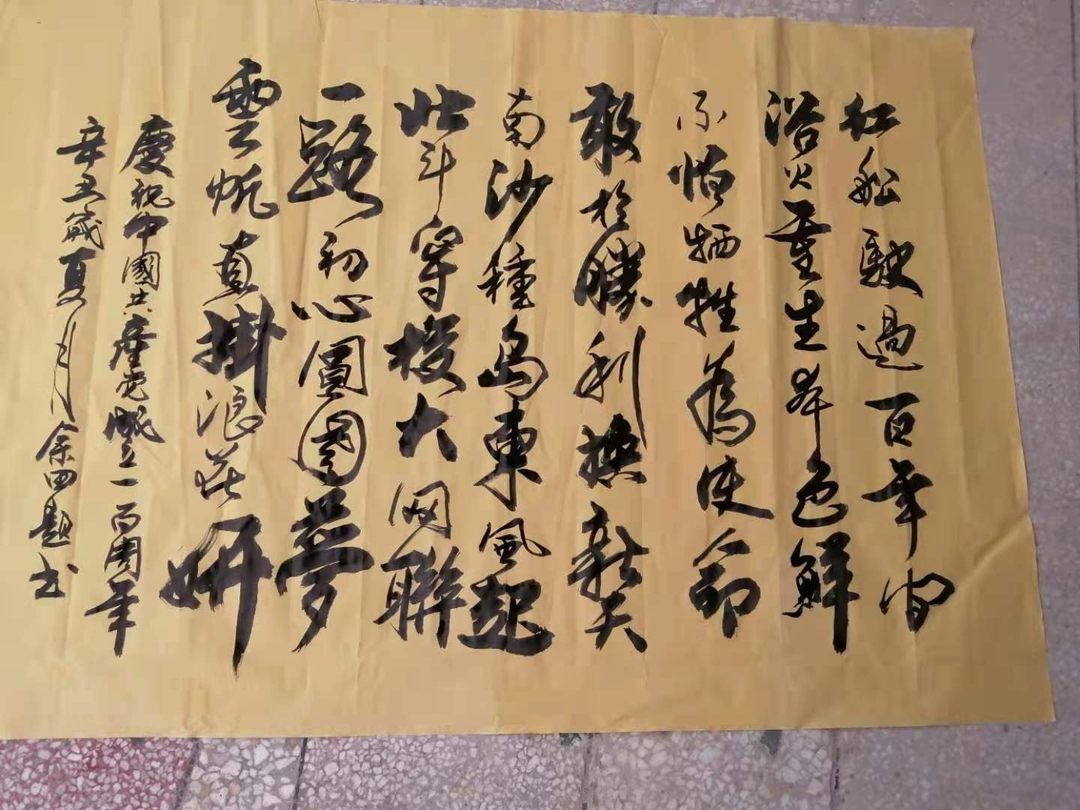 紅船駛過百年间
浴火重生本色鮮
不怕牺牲為使命
敢於勝利換新天
南沙種島東風起
北斗穿梭大网聯
一路初心圓國夢
雲帆直掛浪花妍
慶祝中國共產党成立一百周年
辛丑歲夏月余四題书